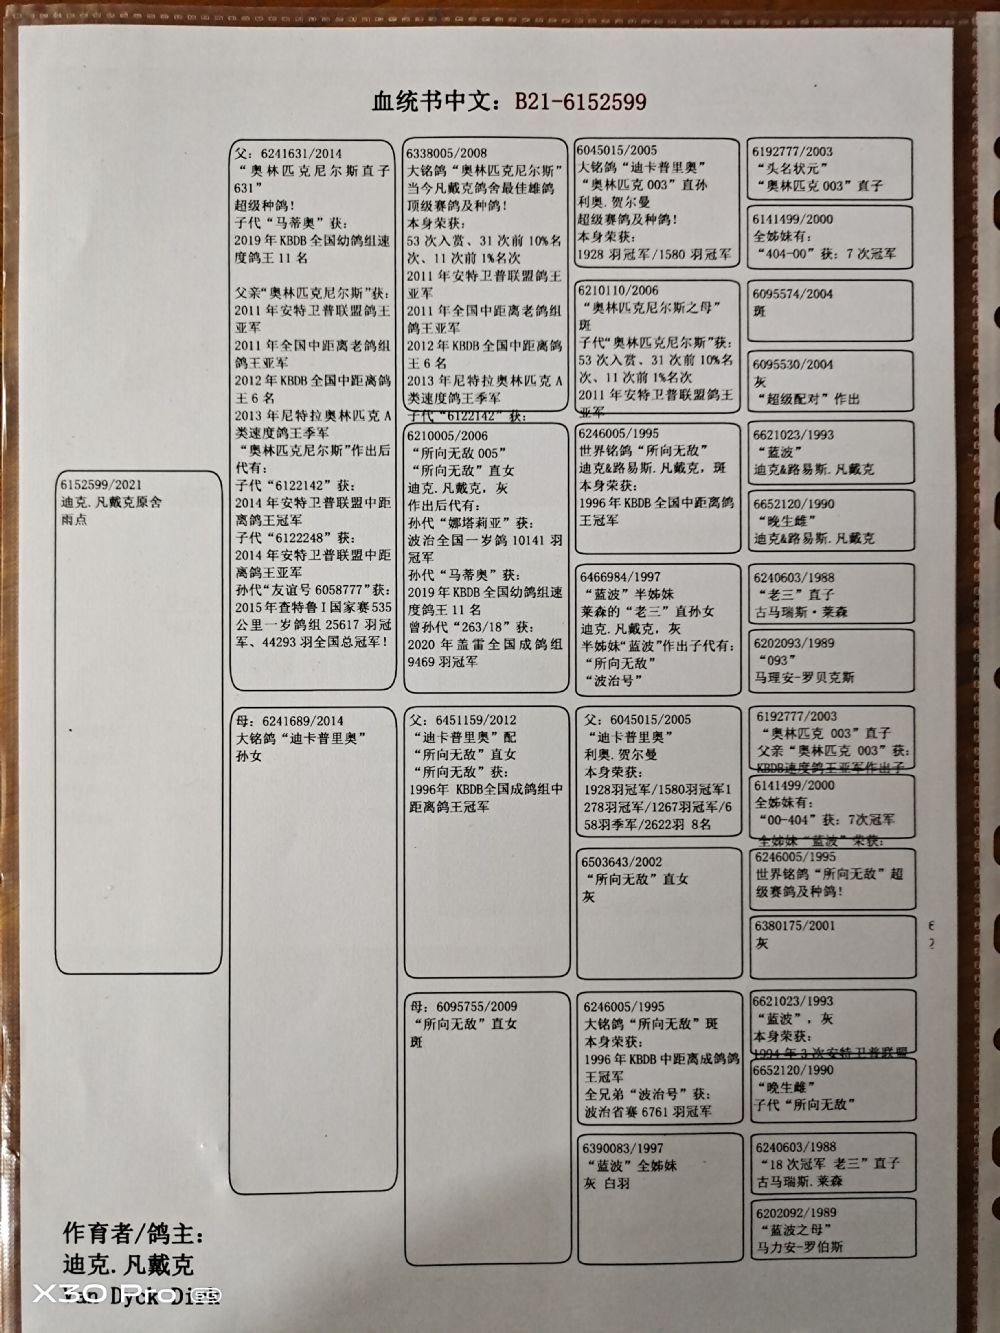 血统书中文：B21-6152599
6152599/2021
迪克.凡戴克原舍
雨点
父：6241631/2014
“奥林匹克尼尔斯直子
631”
超级种鸽！
子代“马蒂奥”获：
2019年KBDB全国幼鸽组速
度鸽王11名
父亲“奥林匹克尼尔斯”获：
2011年安特卫普联盟鸽王
亚军
2011年全国中距离老鸽组
鸽王亚军
2012年KBDB全国中距离鸽
王6名
2013年尼特拉奥林匹克A
类速度鸽王季军
“奥林匹克尼尔斯”作出后
代有：
子代“6122142”获：
2014年安特卫普联盟中距
离鸽王冠军
子代“6122248”获：
2014年安特卫普联盟中距
离鸽王亚军
孙代“友谊号6058777”获：
2015年查特鲁I国家赛535
公里一岁鸽组25617羽冠
军、44293羽全国总冠军！
母：6241689/2014
大铭鸽“迪卡普里奥”
孙女
6338005/2008
大铭鸽“奥林匹克尼尔斯”
当今凡戴克鸽舍最佳雄鸽
顶级赛鸽及种鸽！
本身荣获：
53次入赏、31次前10%名
次、11次前1%名次
2011年安特卫普联盟鸽王
亚军
2011年全国中距离老鸽组
鸽王亚军
2012年KBDB全国中距离鸽
王6名
2013年尼特拉奥林匹克A
类速度鸽王季军
子代“6122142”获：
6210005/2006
“所向无敌005”
“所向无敌”直女
迪克.凡戴克，灰
作出后代有：
孙代“娜塔莉亚”获：
波治全国一岁鸽10141羽
冠军
孙代“马蒂奥”获：
2019年KBDB全国幼鸽组速
度鸽王11名
曾孙代“263/18”获：
2020年盖雷全国成鸽组
9469羽冠军
父：6451159/2012
“迪卡普里奥”配
“所向无敌”直女
“所向无敌”获：
1996年 KBDB全国成鸽组中
距离鸽王冠军
母：6095755/2009
“所向无敌”直女
斑
6045015/2005
大铭鸽“迪卡普里奥”
“奥林匹克003”直孙
利奥.贺尔曼
超级赛鸽及种鸽！
本身荣获：
1928羽冠军/1580羽冠军
6210110/2006
“奥林匹克尼尔斯之母”
斑
子代“奥林匹克尼尔斯”获：
53次入赏、31次前10%名
次、11次前1%名次
2011年安特卫普联盟鸽王
亚军
6246005/1995
世界铭鸽“所向无敌”
迪克&路易斯.凡戴克，斑
本身荣获：
1996年KBDB全国中距离鸽
王冠军
6466984/1997
“蓝波”半姊妹
莱森的“老三”直孙女
迪克.凡戴克，灰
半姊妹“蓝波”作出子代有：
“所向无敌”
“波治号”
父：6045015/2005
“迪卡普里奥”
利奥.贺尔曼
本身荣获：
1928羽冠军/1580羽冠军1
278羽冠军/1267羽冠军/6
58羽季军/2622羽 8名
6503643/2002
“所向无敌”直女
灰
6246005/1995
大铭鸽“所向无敌”斑
本身荣获：
1996年KBDB中距离成鸽鸽
王冠军
全兄弟“波治号”获：
波治省赛6761羽冠军
6390083/1997
“蓝波”全姊妹
灰 白羽
6192777/2003
“头名状元”
“奥林匹克003”直子
6141499/2000
全姊妹有：
“404-00”获：7次冠军
6095574/2004
斑
6095530/2004
灰
“超级配对”作出
6621023/1993
“蓝波”
迪克&路易斯.凡戴克
6652120/1990
“晚生雌”
迪克&路易斯.凡戴克
6240603/1988
“老三”直子
古马瑞斯·莱森
6202093/1989
“093”
马理安-罗贝克斯
6192777/2003
“奥林匹克 003”直子
父亲“奥林匹克 003”获：
KBDB速度鸽王亚军作出子
6141499/2000
全姊妹有：
“00-404”获：7次冠军
全姊妹“蓝波”荣获：
6246005/1995
世界铭鸽“所向无敌”超
级赛鸽及种鸽！
6380175/2001
灰
6621023/1993
“蓝波”，灰
本身荣获：
1994年3次安特卫普联盟
6652120/1990
“晚生雌”
子代“所向无敌”
6240603/1988
“18次冠军 老三”直子
古马瑞斯.莱森
6202092/1989
“蓝波之母”
马力安-罗伯斯
作育者/鸽主：
迪克.凡戴克
Van Dyck Dirk
X30 Pro